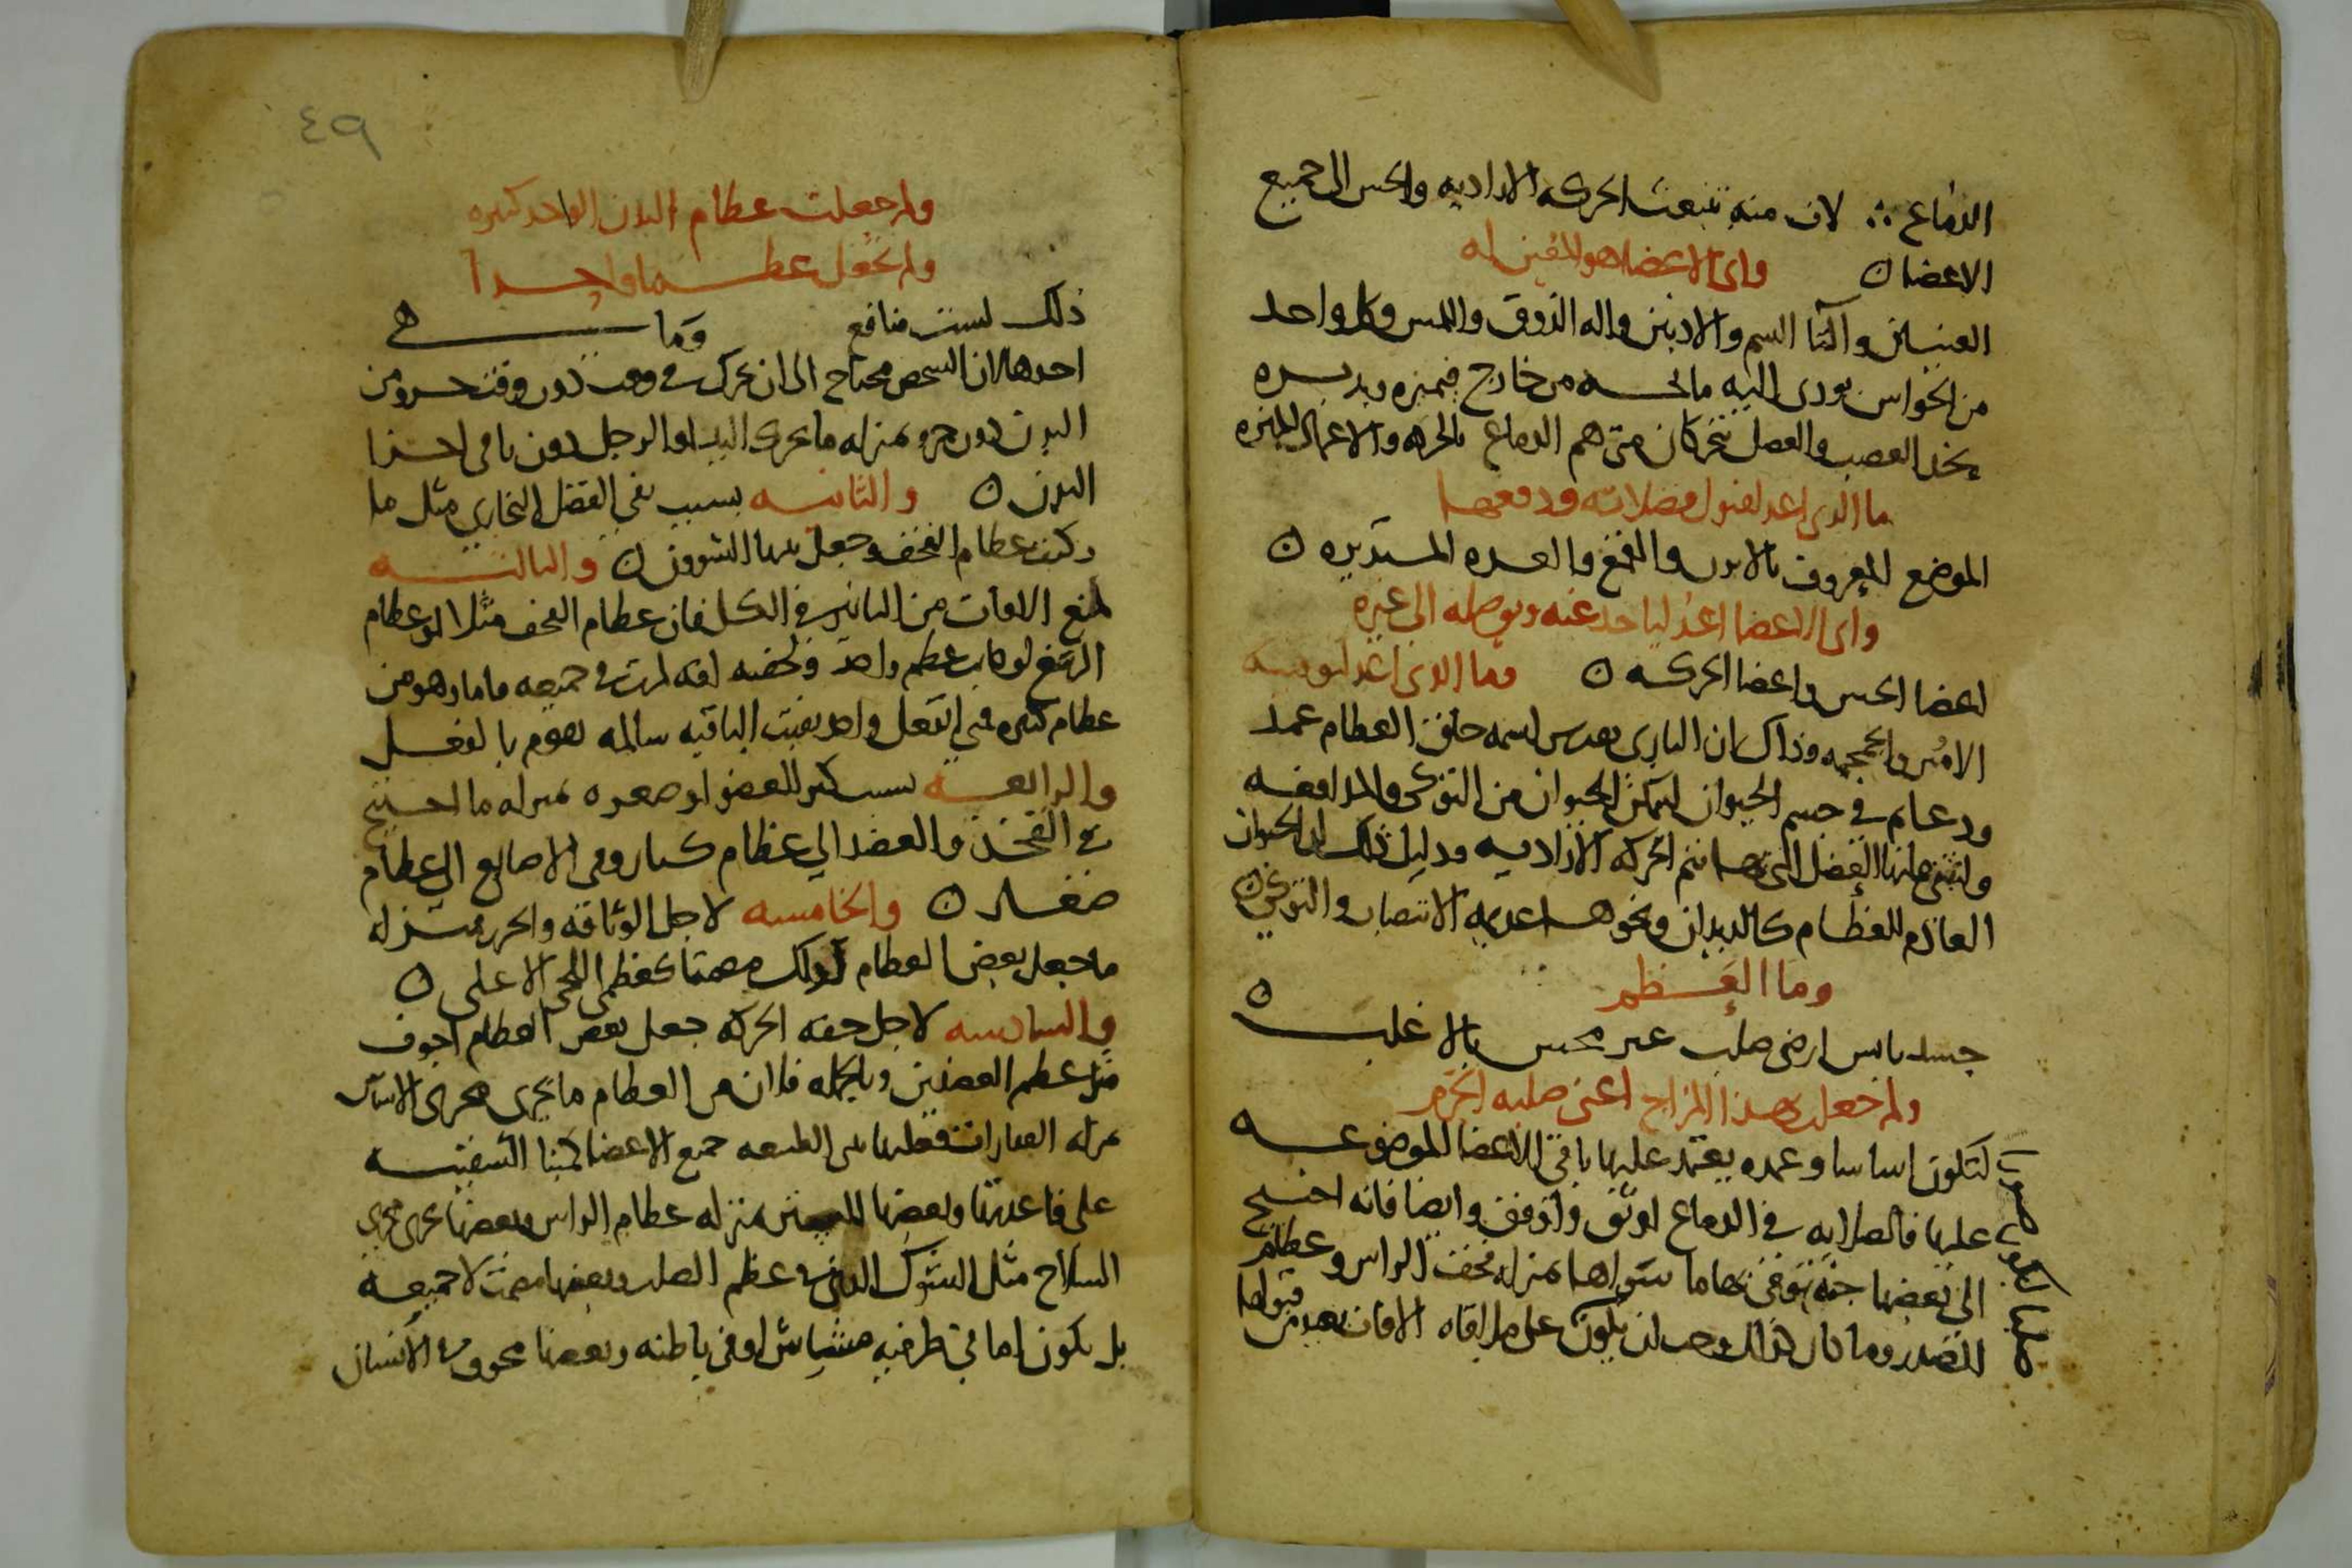 الدماغ ∴ لان منه تنبعث الحركه الاراديه والحس الى جميع
الاعضا ن واى الاعضا هو المعين له
العينين وآلتا الشم والاذنين واله الذوق واللمس وكل واحد
من الحواس يودى اليه ما من خارج فيميزه
العصب والعضل يتحركان متى هم الدماغ بالحركه والاعمال المميزه
ما الدى اعد لقبول فضلاته ودفعها
الموضع المعروف بالابزن والقمع والغده المستديره ن
واى الاعضا اعد لياخد عنه ويوصله الى غيره
اعضا الحس واعضا الحركه ن وما الدى اعد لتوقيته
الامين والجمجمه وذاك ان البارى تقدس اسمه خلق العظام عمد
ودعايم فى جسم الحيوان ليتمكن الحيوان من التوكى والمدافعه
العضل التى بها تتم الحركه الاراديه ودليل ذلك ان الحيوان
العادم للعظام كالديدان ونحوها عديمه الانتصاب والتوكى ن
وما العظم
جسد يابس ارضى صلب غير محس بالاغلب ن
ولم جعل بهذا المزاج اعنى صلبه الجرم
لتكون اساسا وعمده يعتمد عليها باقى الاعضا الموضوعه
عليها فالصلابه فى الدماغ اوثق واوفق وايضا فانه احتيج
الى بعضها جنه توقى بها ما سواها بمنزله قحف الراس وعظام
الصدر وما كان كذلك وجب ان يكون على ملاقاه الافات بعيد من
قبولها
٤٩
ولم جعلت عظام البدن الواحد كثيره
ولم تجعل عظما واحدا
ذلك لست منافع وما هى
احدها لان الشخص محتاج الى ان يحرك فى وقت دون وقت جزو من
البدن دون جزو بمنزله ما يحرك اليد او الرجل دون باقى اجزا
البدن ن والثانيه بسبب نفى الفضل البخارى مثل ما
ركبت عظام القحف وجعل بينها الشوون ن والثالثه
لمنع الافات من التاثير فى الكل فان عظام القحف مثلا او عظام
الرسغ لو كانت عظم واحد ولحقته افه لسرت فى جميعه فاما وهو من
عظام كثيره فمتى انفعل واحد بقيت الباقيه سالمه تقوم بالفعل
والرابعه بسبب كبر العضو او صغره بمنزله ما احتيج
فى الفخذ والعضد الى عظام كبار وفى الاصابع الى عظام
صغار ن والخامسه لاجل الوثاقه والحرز بمنزله
ما جعل بعض العظام لذلك مصمتا كعظمى اللحى الاعلى ن
والسادسه لاجل خفه الحركه جعل بعض العظام اجوف
مثل عظم العضدين وبالجمله فان من العظام ما يجرى مجرى الاساس
جميع الاعضا السفينه
على قاعدتها وبعضها بمنزله عظام الراس وبعضها يجرى مجرى
السلاح مثل الشوك الدى فى عظم الصلب وبعضها مصمت لا جميعه
بل يكون اما فى طرفيه مشاش او فى باطنه وبعضها مجوف فى الانسان